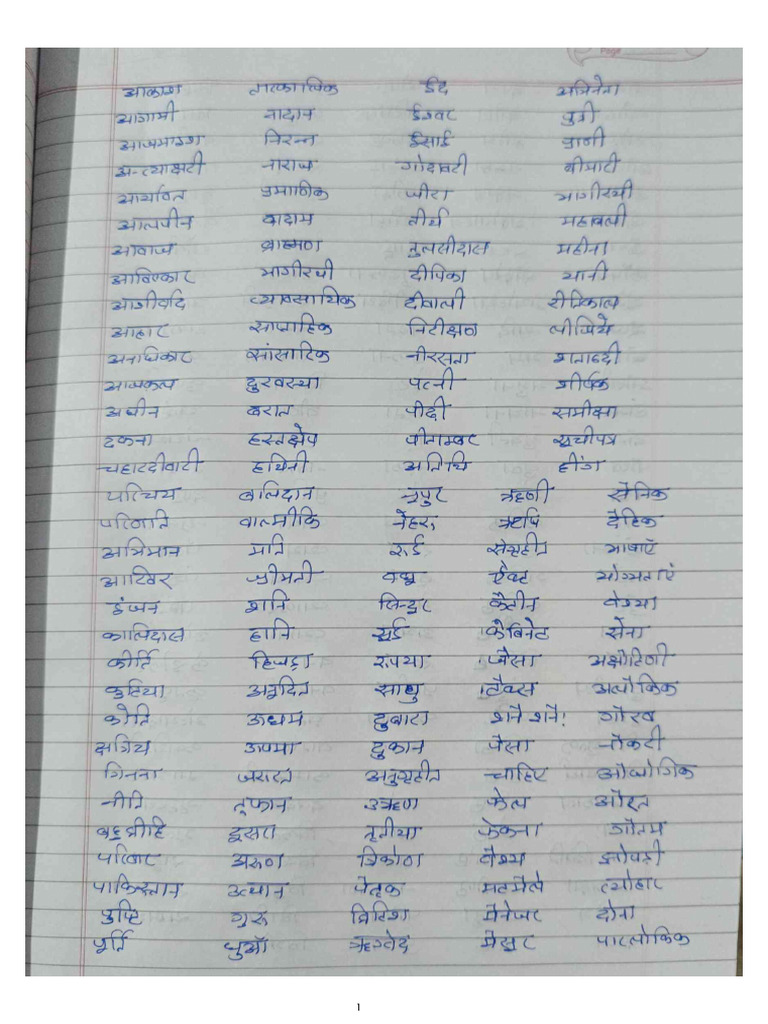 Page
आकाश तात्कालिक ईद अभिनेता
आगामी नादान ईश्वर पुत्री
आजमाइश निरन्त ईसाई प्राणी
अन्त्याक्षरी नाराज गोदावरी बीमारी
आर्यावत प्रमाणिक जीरा भागीरथी
आलपीन बादाम तीर्थ महाबली
आवाज ब्राह्मण तुलसीदास महीना
आविष्कार भागीरथी दीपिका यानी
आशीर्वाद व्यावसायिक दीवाली रीतिकाल
आहार साप्ताहिक निरीक्षण लीजिये
अनाधिकार सांसारिक नीरसता शताब्दी
आजकल दुरवस्था पत्नी शीर्षक
अधीन बरात पीढ़ी समीक्षा
ढकना हस्तक्षेप पीताम्बर सूचीपत्र
चहारदीवारी हथिनी अतिथि हींग
परिचय बलिदान नूपुर ऋणी सैनिक
परिणति वाल्मीकि नेहरू ऋषि दैहिक
अभिमान मति रुई सेन्द्रीन भाषाएँ
आखिर श्रीमती वधू ऐक्ट योग्यताएं
इंजन शनि सिन्दूर कैटीन वेश्या
कालिदास हानि सूई कैबिनेट सेना
कीर्ति हिजड़ा रुपया जैसा अक्षौहिणी
कुटिया अनुदित साधु टैक्स अलौकिक
कोटि ऊधम दुबारा शनै शनै! गौरव
क्षत्रिय ऊपमा दुकान पैसा नौकरी
गिनना जरूरत अनुगृहीत चाहिए औद्योगिक
नीति तूफान उऋण फेल औरत
बहुब्रीहि दूसरा तृतीया फेकना गौतम
परिवार अरूण त्रिकोण वैश्य झोपड़ी
पाकिस्तान उत्थान पैतृक मटमैले त्योहार
पुष्टि गुरू ब्रिटिश मैनेजर दोना
पूर्ति धुआँ ऋग्वेद मैसूर पारलौकिक
1